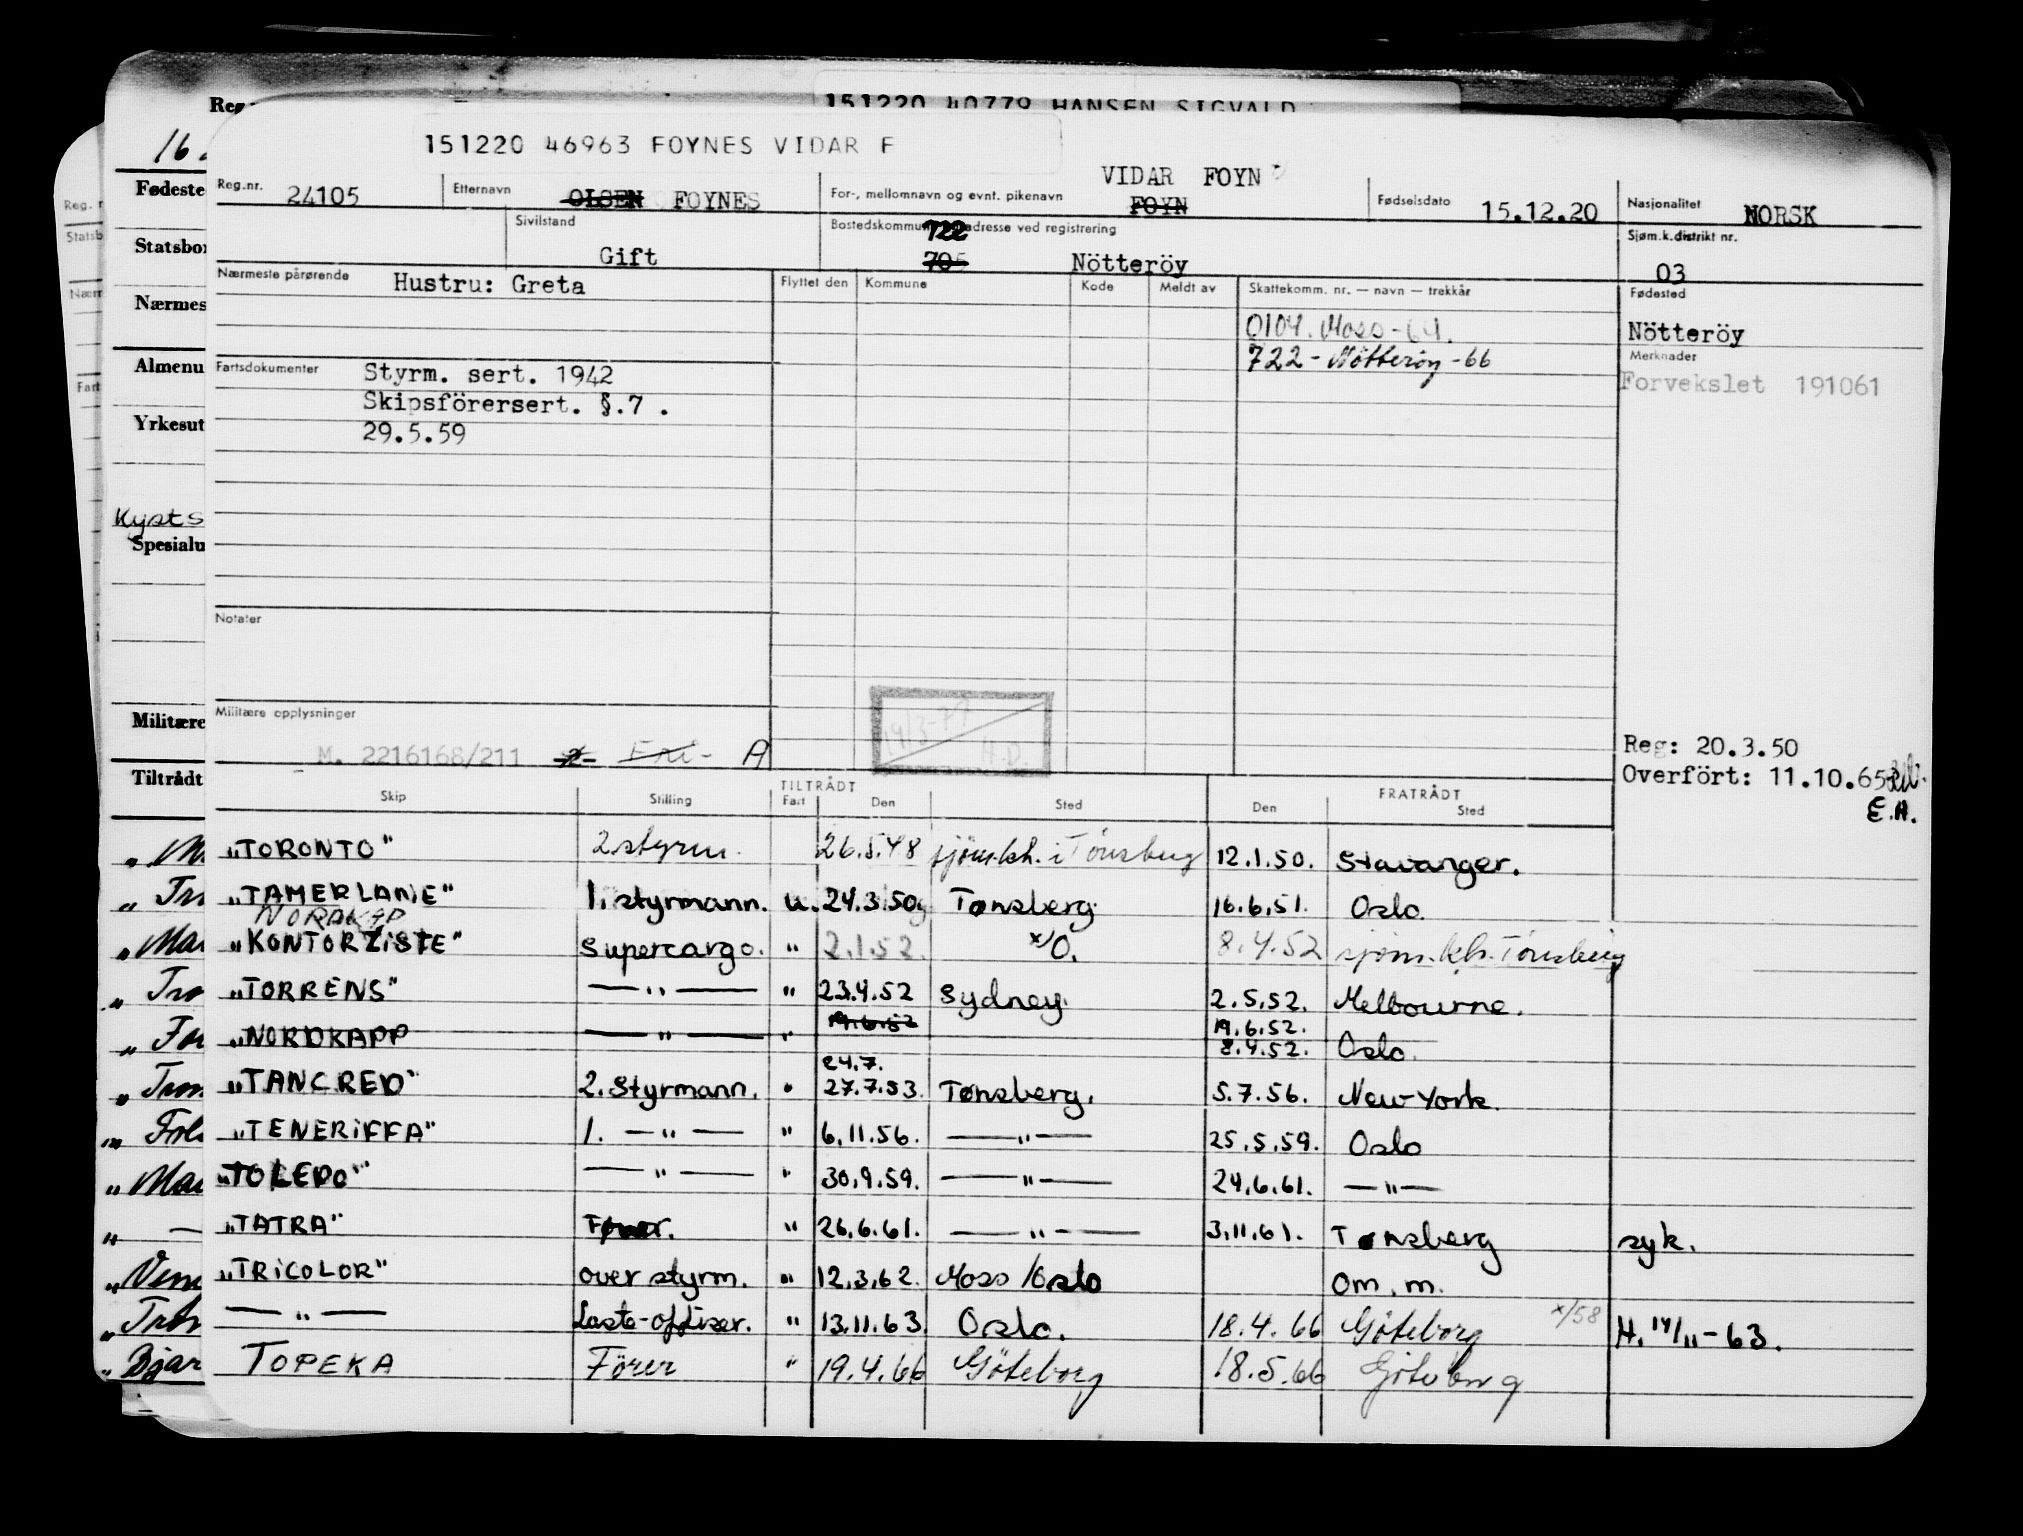 151220 40779 HANSEN SIGVALD
151220 46963 FOYNES VIDAR F
Reg.nr. 24105 Etternavn OLSEN FOYNES For-, mellomnavn og evnt. pikenavn VIDAR FOYN FOYN Fødselsdato 15.12.20 Nasjonalitet NORSK
Sivilstand Gift Bostedskommune adresse ved registrering 722 705 Nötteröy Sjøm.k.distrikt nr. 03
Nærmeste pårørende Hustru: Greta Flyttet den Kommune Kode Meldt av Skattekomm. nr. — navn — trekkår Fødested
0104. Moss - 64. Nötteröy
722 - Nötteröy - 66 Merknader
Forvekslet 191061
Fartsdokumenter Styrm. sert. 1942
Skipsförersert. §.7 .
29.5.59
Notater
Militære opplysninger
M. 2216168/211 A
14/3-77
H.D.
Reg: 20.3.50
Overfört: 11.10.65
E.H.
TILTRÅDT FRATRÅDT
Skip Stilling Fart Den Sted Den Sted
"TORONTO" 2 styrm. 26.5.48 sjöm.kh. i Tönsberg 12.1.50. Stavanger.
"TAMERLANE" 1. styrmann. u. 24.3.50 Tønsberg. 16.6.51. Oslo.
NORDKAP
"KONTORLISTE" Supercargo. " 2.1.52. x) O. 8.4.52 sjöm.kh. Tönsberg
"TORRENS" — " — " 23.4.52 Sydney. 2.5.52. Melbourne.
19.6.52 19.6.52.
"NORDKAPP — " — " 8.4.52. Oslo.
24.7.
"TANCRED" 2. Styrmann. " 27.7.53. Tønsberg. 5.7.56. New York.
"TENERIFFA" 1. — " — " 6.11.56. — " — 25.5.59. Oslo
"TOLEDO" — " — " 30.9.59. — " — 24.6.61. — " —
"TATRA" Fører. " 26.6.61. — " — 3.11.61. Tønsberg syk.
"TRICOLOR" over styrm. " 12.3.62. Moss /Oslo Om. m.
— " — Laste-offiser. " 13.11.63. Oslo. 18.4.66 Göteborg x/58 H. 14/11-63.
TOPEKA Förer " 19.4.66 Göteborg 18.5.66 Göteborg
Reg
16
Fødeste
Statsbor
Nærmes
Almenu
Yrkesut
Kysts
Spesialu
Militære
Tiltrådt
Reg.
Statsb
Nærm
Fart